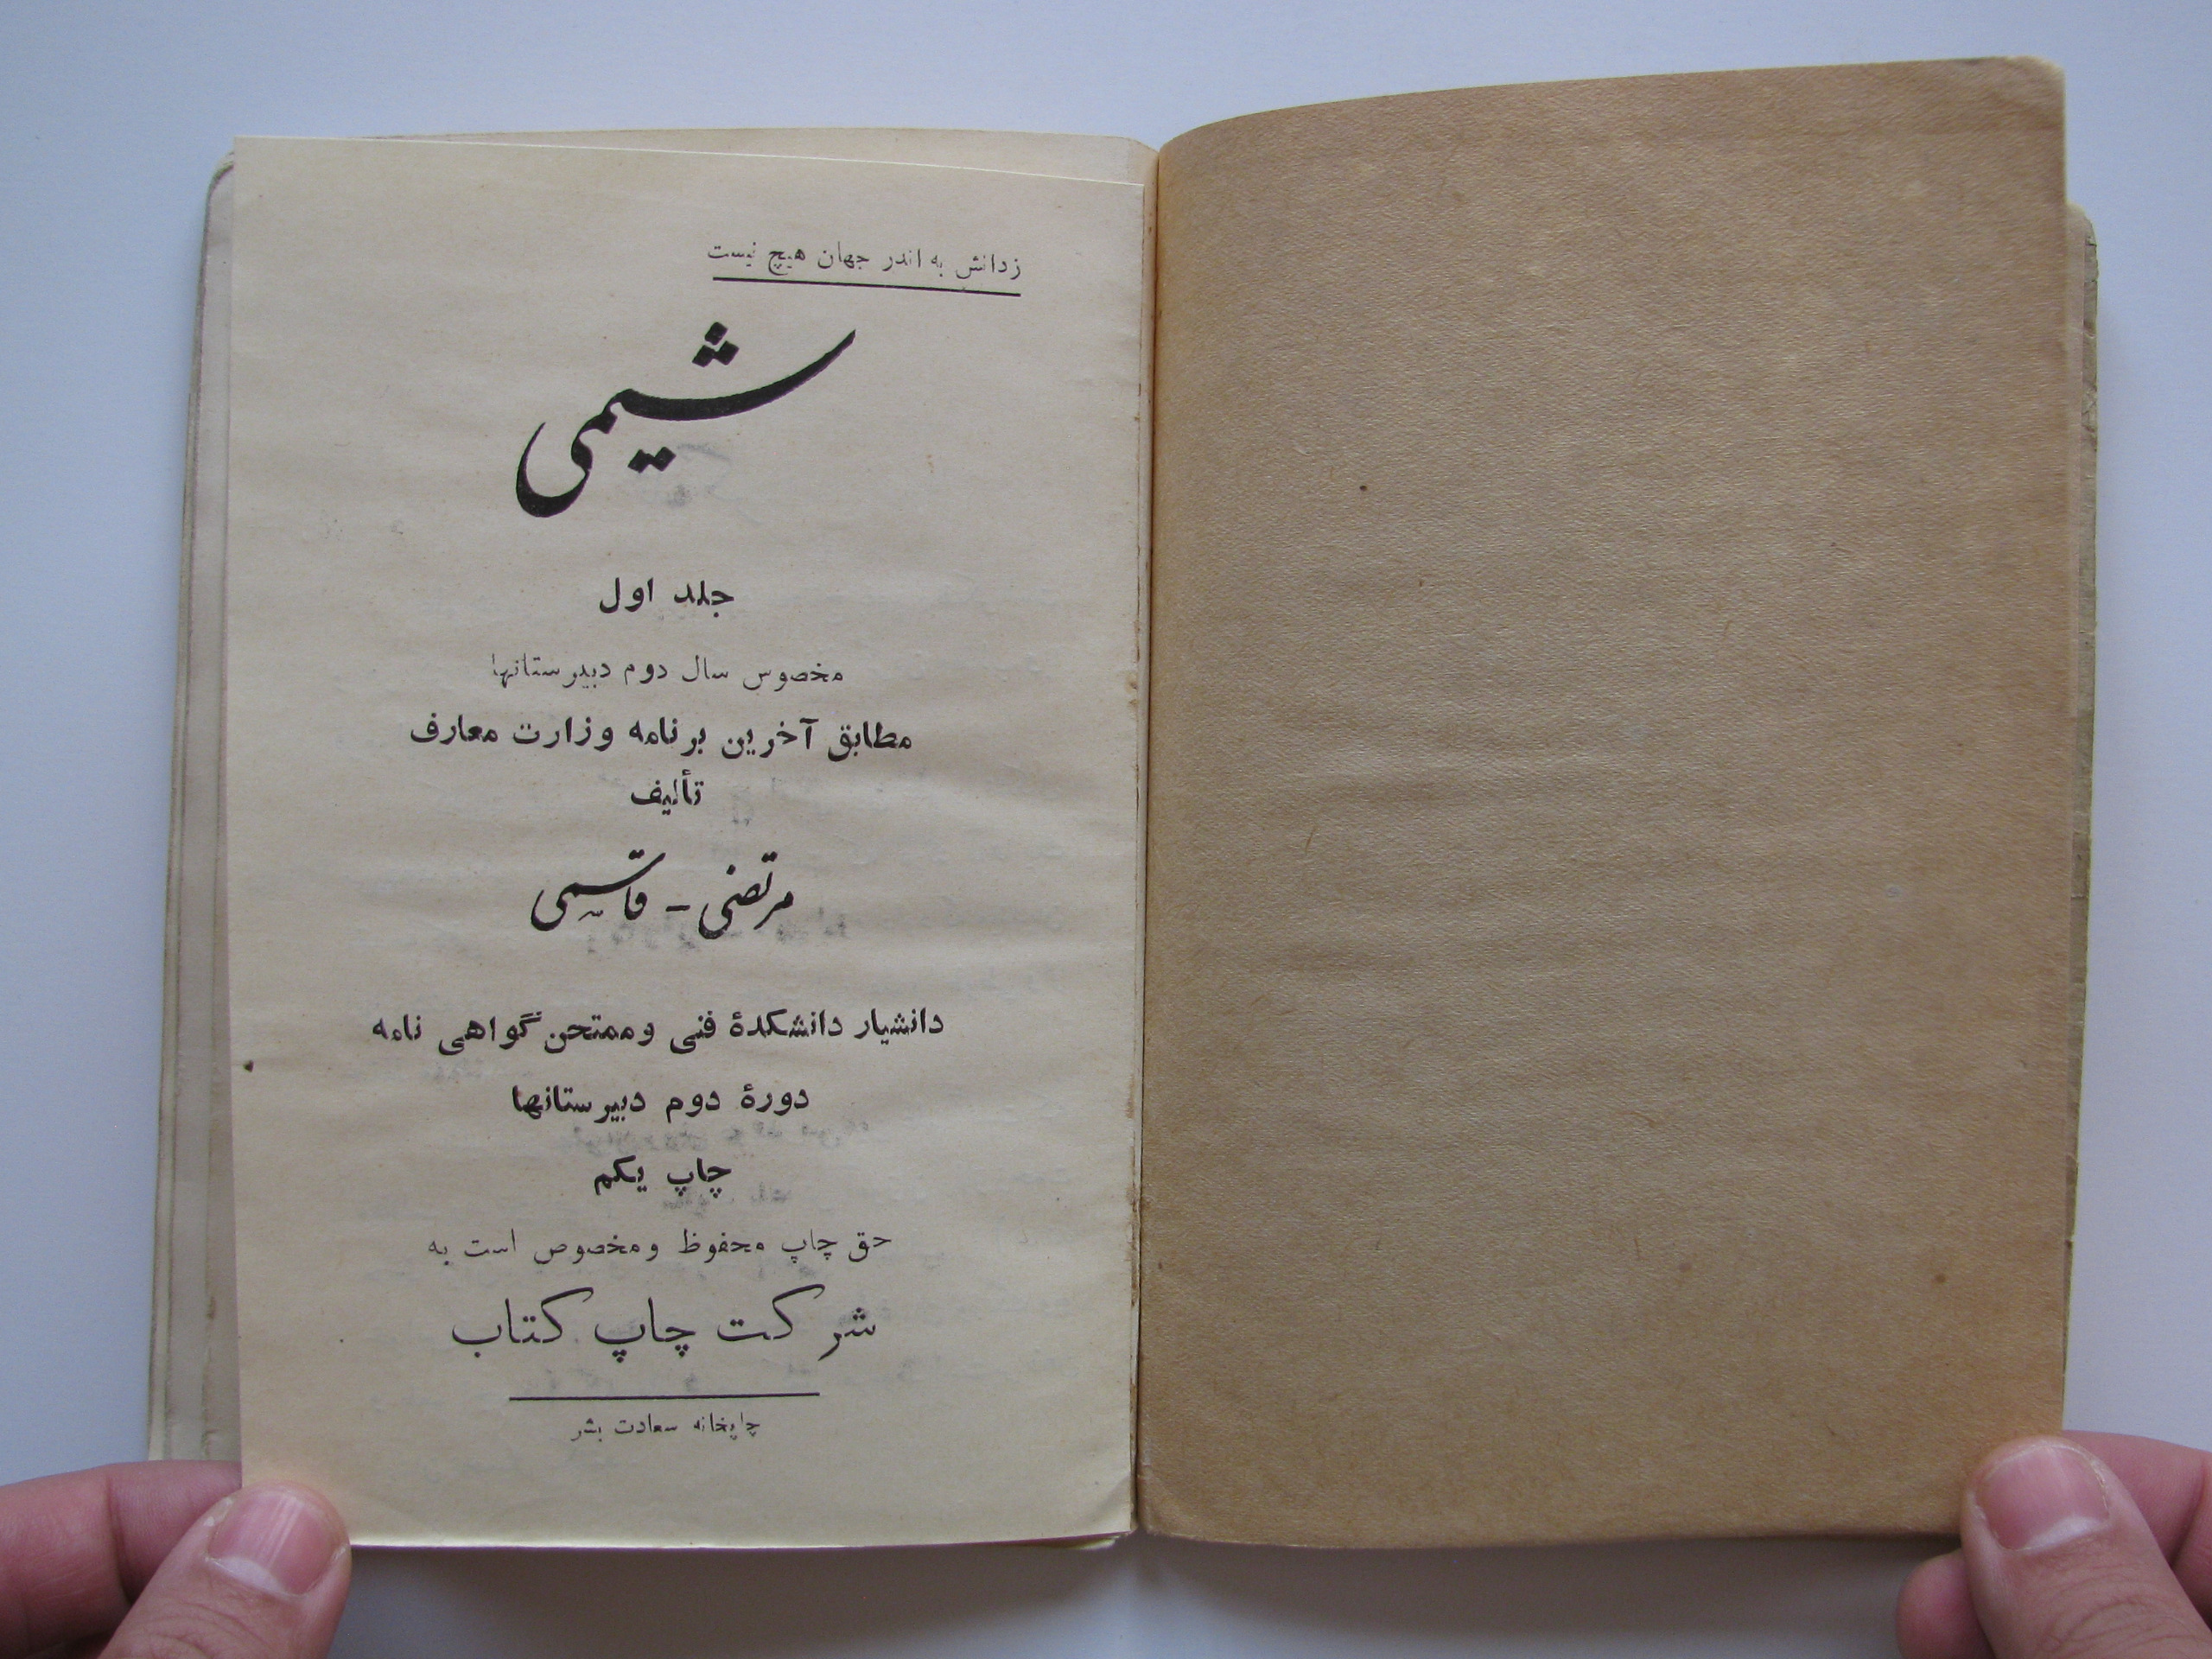 زدانش به اندر جهان هیچ نیست
شیمی
جلد اول
مخصوس سال دوم دبیرستانها
مطابق آخرین برنامه وزارت معارف
تألیف
مرتضی - قاسمی
دانشیار دانشکدهٔ فنی و ممتحن گواهی نامه
دورهٔ دوم دبیرستانها
چاپ یکم
حق چاپ محفوظ و مخصوص است به
شرکت چاپ کتاب
چاپخانه سعادت بشر